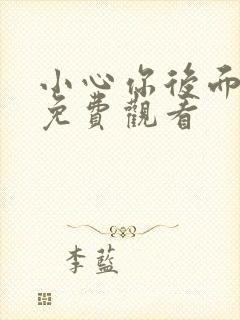 小心你後而
免費觀看
李藍